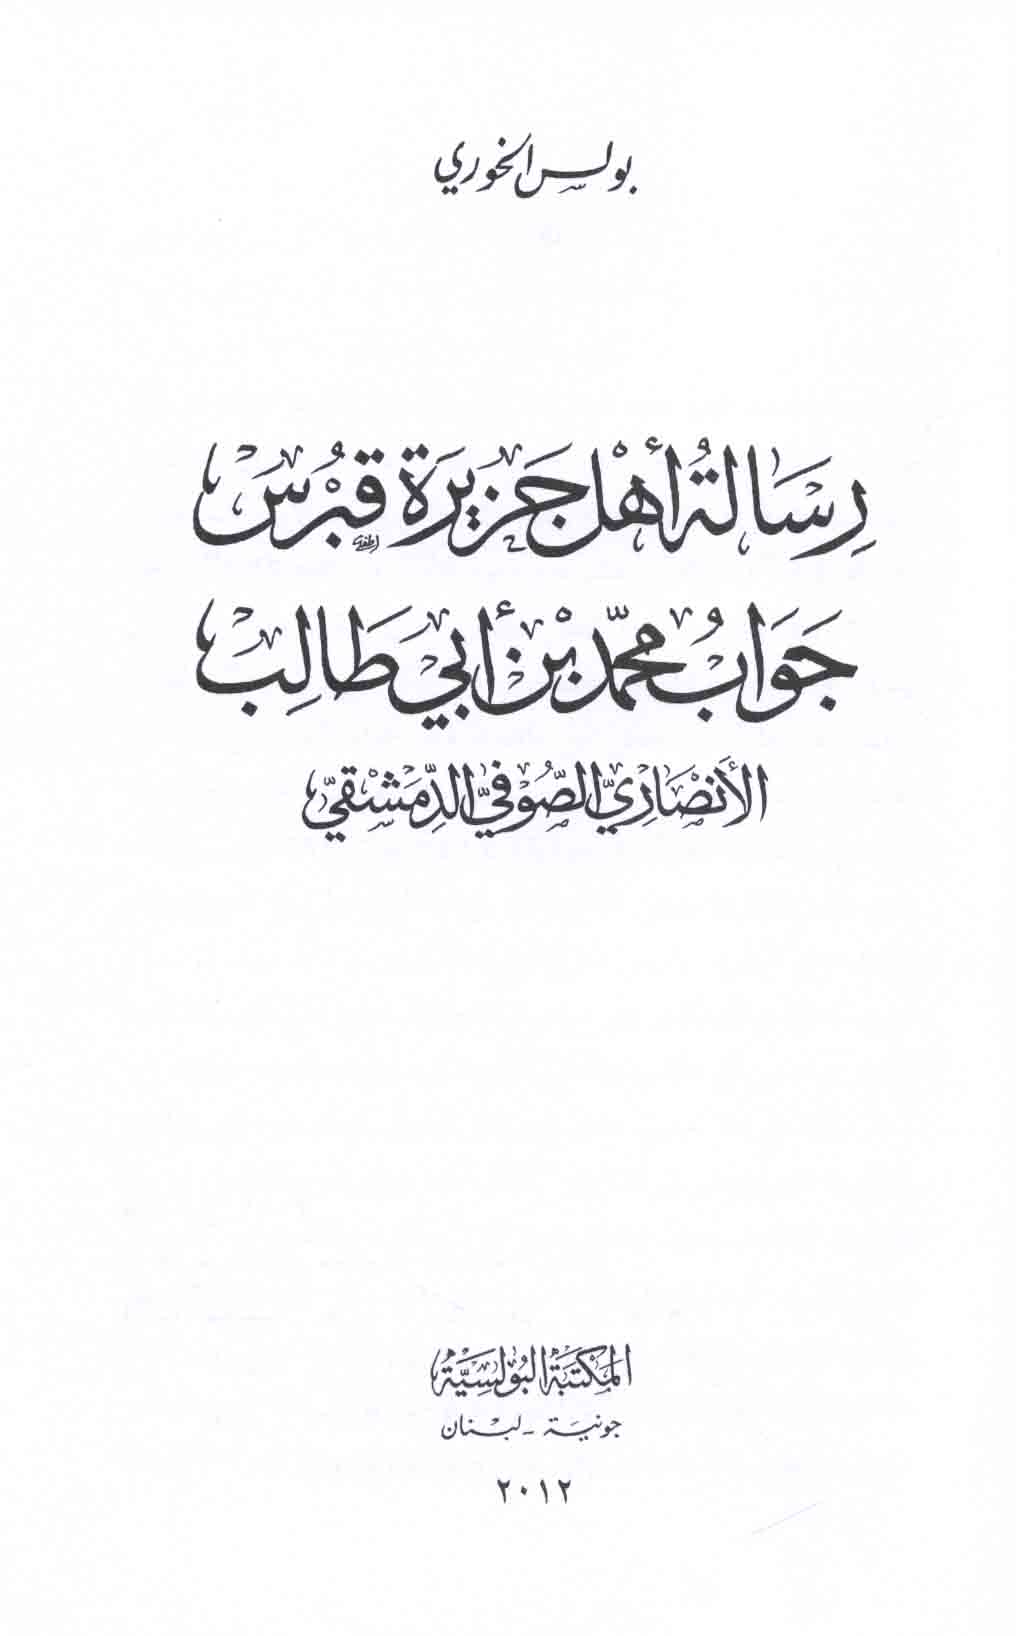 بولس الخوري
رِسَالَةُ أَهْل جَزيرَة قبْرُسَ
جَوَابُ محمّد بْن أَبي طَالِب
الأَنْصَارِيّ الصُّوْفيّ الدِّمَشْقيّ
المكتبَة البُولسِيَّة
جونيَة - لبْنان
٢٠١٢